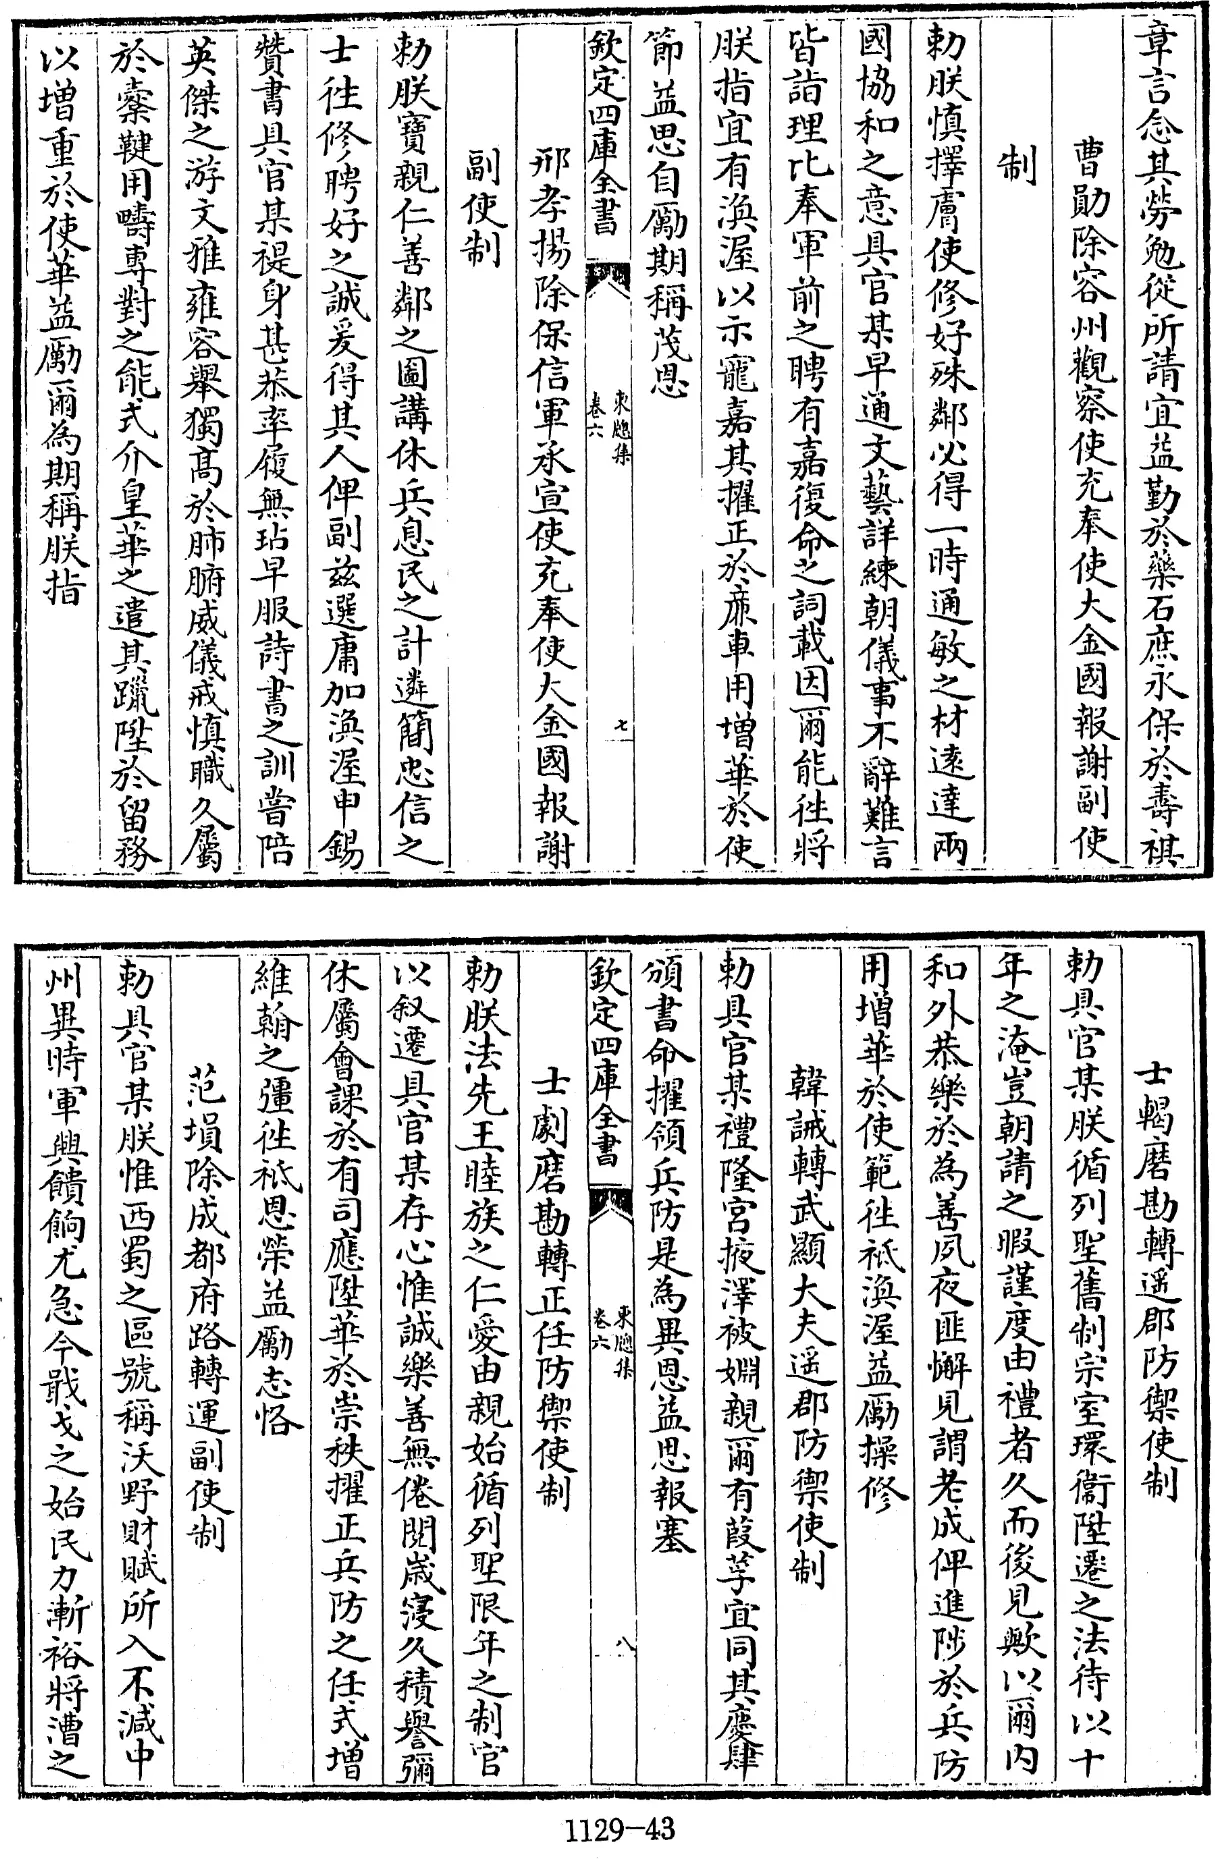 章言念其勞勉從所請宜益勤於藥石庶永保於壽祺
曹勛除容州觀察使充奉使大金國報謝副使
制
勅朕慎擇膚使修好殊鄰必得一時通敏之材遠達兩
國協和之意具官某早通文藝詳練朝儀事不辭難言
皆詣理比奉軍前之聘有嘉復命之詞載因爾能徃將
朕指宜有渙渥以示寵嘉其擢正於亷車用增華於使
節益思自勵期稱茂恩
欽定四庫全書
東牕集
卷六
七
邢孝揚除保信軍承宣使充奉使大金國報謝
副使制
勅朕寶親仁善鄰之圖講休兵息民之計遴簡忠信之
士徃修聘好之誠爰得其人俾副兹選庸加渙渥申錫
贊書具官某禔身甚恭率履無玷早服詩書之訓嘗陪
英傑之游文雅雍容舉獨髙於肺腑威儀戒慎職久屬
於櫜鞬用疇專對之能式介皇華之遣其躐陞於留務
以增重於使華益勵爾為期稱朕指
士輵磨勘轉遥郡防禦使制
勅具官某朕循列聖舊制宗室環衞陞遷之法待以十
年之淹豈朝請之暇謹度由禮者久而後見歟以爾内
和外恭樂於為善夙夜匪懈見謂老成俾進陟於兵防
用增華於使範徃祗渙渥益勵操修
韓誠轉武顯大夫遥郡防禦使制
勅具官某禮隆宮掖澤被婣親爾有葭莩宜同其慶肆
頒書命擢領兵防是為異恩益思報塞
欽定四庫全書
東牕集
卷六
八
士劇磨勘轉正任防禦使制
勅朕法先王睦族之仁愛由親始循列聖限年之制官
以叙遷具官某存心惟誠樂善無倦閲歳寖久積譽彌
休屬會課於有司應陞華於崇秩擢正兵防之任式增
維翰之彊徃祗恩榮益勵志恪
范埙除成都府路轉運副使制
勅具官某朕惟西蜀之區號稱沃野財賦所入不減中
州異時軍興饋餉尤急今戢戈之始民力漸裕將漕之
1129-43